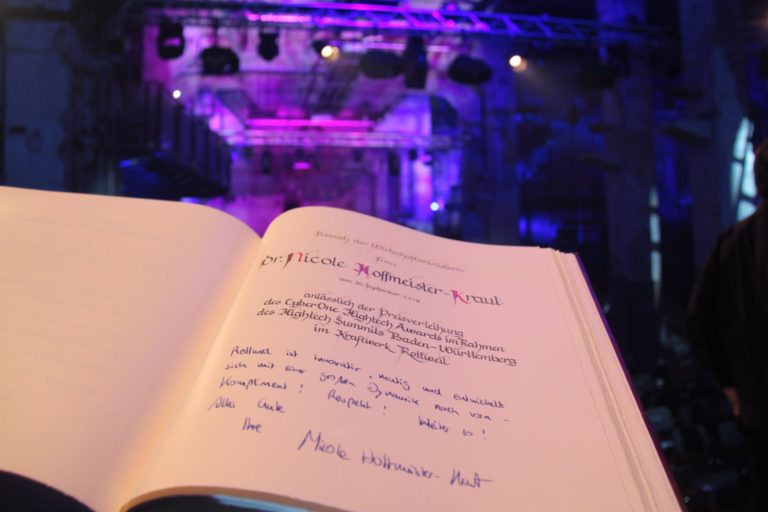 Besuch der Wirtschaftsministerin
Frau
Dr. Nicole Hoffmeister-Kraut
am 20. September 2018
anlässlich der Preisverleihung
des CyberOne Hightech Awards im Rahmen
des Hightech Summits Baden-Württemberg
im Kraftwerk Rottweil
Rottweil ist innovativ, mutig und entwickelt
sich mit einer großen Dynamik nach vorn -
Kompliment! Respekt! Weiter so!
Alles Gute
Ihre
Nicole Hoffmeister-Kraut